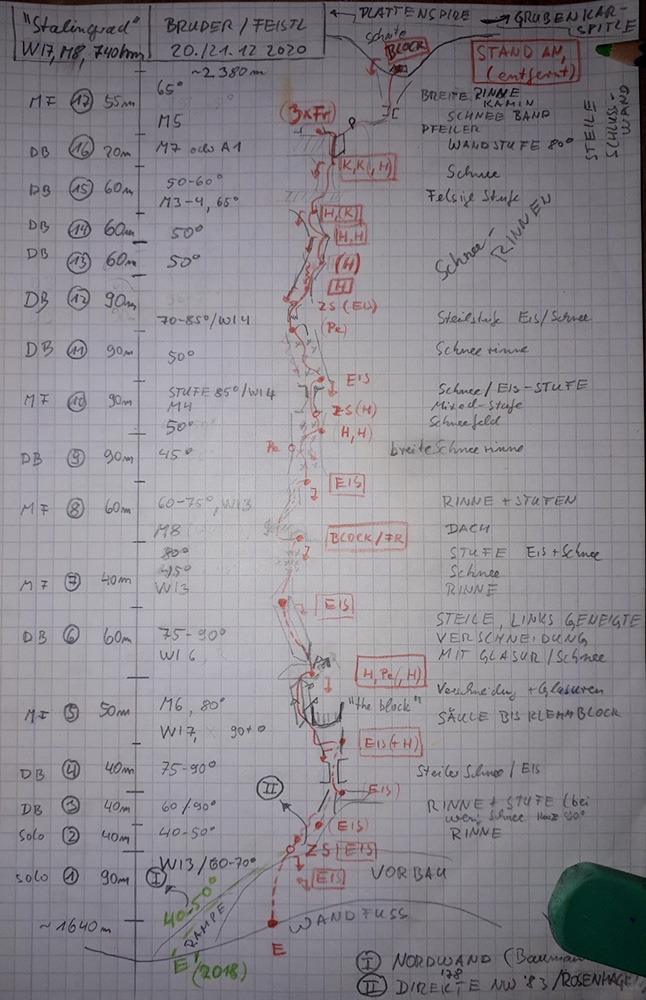 "Stalingrad" BRUDER / FEISTL ← PLATTENSPIRE → GRUBENKAR-
WI7, M8, 740hm 20./21.12 2020 SPITZE
Scharte BLOCK STAND AN,
(entfernt)
~2380m
MF 17 55m 65° BREITE RINNE
KAMIN
M5 (3xFr) SCHNEE BAND
PFEILER
STEILE SCHLUSS-
WAND
DB 16 20m M7 oder A1 WANDSTUFE 80°
K,K(,H)
DB 15 60m 50-60° Schnee
M3-4, 65° Felsige Stufe
H,(K)
DB 14 60m 50° H,H
Schnee-
RINNEN
DB 13 60m 50° (H)
H
DB 12 90m ZS (EIS)
70-85°/WI4 (Pe) Steilstufe Eis/Schnee
DB 11 90m 50° Schneerinne
EIS
MF 10 90m STUFE 85°/WI4 Schnee/EIS-STUFE
M4 ZS(H) Mixed-Stufe
50° H,H Schneefeld
DB 9 90m 45° Pe breite Schneerinne
EIS
MF 8 60m 60-75°, WI3 RINNE + STUFEN
M8 BLOCK/FR DACH
80° STUFE Eis+Schnee
45° Schnee
MF 7 40m WI3 RINNE
EIS
STEILE, LINKS GENEIGTE
DB 6 60m 75-90° VERSCHNEIDUNG
WI6 MIT GLASUR/Schnee
H,Pe(,H)
Verschneidung + Glasuren
MF 5 50m M6, 80° "the block" SÄULE BIS KLEMMBLOCK
WI7, 90+°
EIS(+H)
DB 4 40m 75-90° Steiler Schnee/EIS
II (EIS)
DB 3 40m 60/90° RINNE + STUFE (bei
wenig Schnee 90°
SOLO 2 40m 40-50° (EIS) RINNE
ZS EIS
WI3/60-70°
SOLO 1 90m I EIS VORBAU
40-50°
RAMPE
~1640m WANDFUSS
E E
(2018)
I NORDWAND
'78
II DIREKTE NW '83/